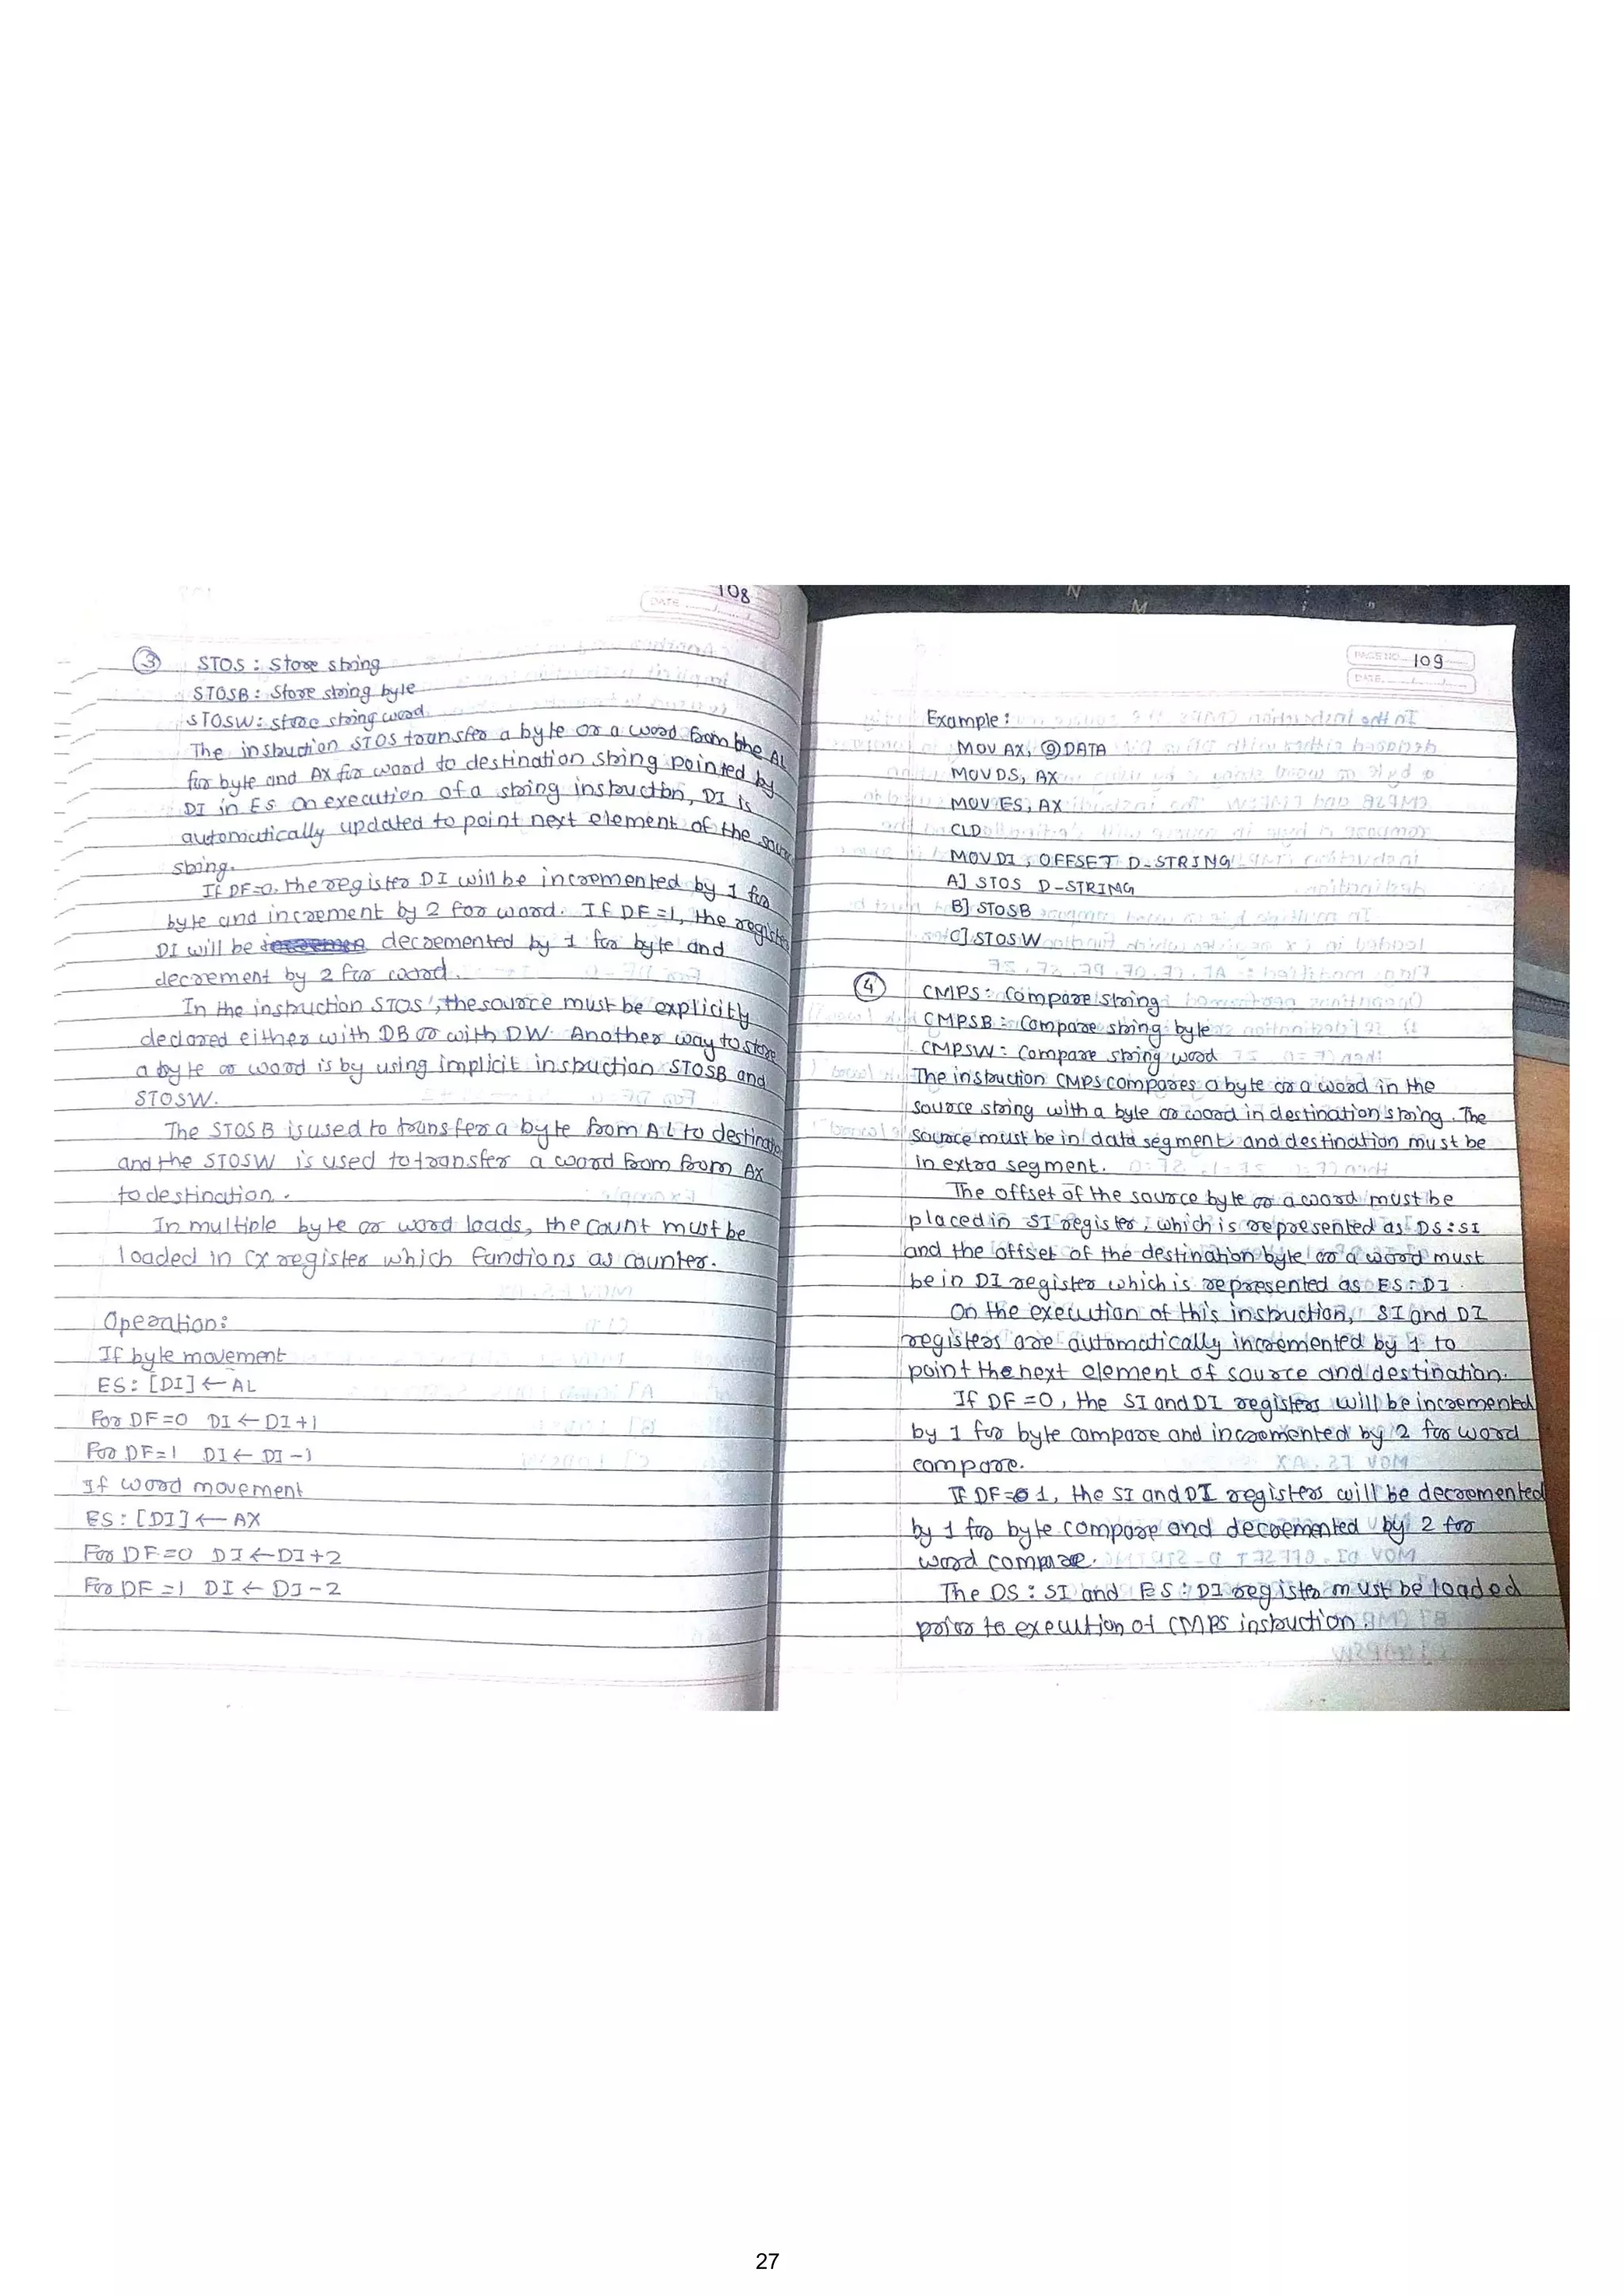 108
DATE
③ STOS : Store string
STOSB : Store string byte
STOSW : store string word
The instruction STOS transfer a byte or a word from the AL
for byte and AX for word to destination string pointed by
DI in ES On execution of a string instruction, DI is
automatically updated to point next element of the source
string.
If DF=0, the register DI will be incremented by 1 for
byte and increment by 2 for word. If DF=1, the register
DI will be decremented by 1 for byte and
decrement by 2 for word.
In the instruction STOS, the source must be explicitly
declared either with DB or with DW. Another way to store
a byte or word is by using implicit instruction STOSB and
STOSW.
The STOSB is used to transfer a byte from AL to destination
and the STOSW is used to transfer a word from from AX
to destination.
In multiple byte or word loads, the count must be
loaded in CX register which functions as counter.
Operation:
If byte movement
ES : [DI] ← AL
For DF=0 DI ← DI+1
For DF=1 DI ← DI-1
If word movement
ES : [DI] ← AX
For DF=0 DI ← DI+2
For DF=1 DI ← DI-2
PAGE NO. 109
DATE
Example :
MOV AX, @DATA
MOV DS, AX
MOV ES, AX
CLD
MOV DI, OFFSET D-STRING
A] STOS D-STRING
B] STOSB
C] STOSW
④ CMPS : Compare string
CMPSB : Compare string byte
CMPSW : Compare string word
The instruction CMPS compares a byte or a word in the
source string with a byte or word in destination string. The
source must be in data segment and destination must be
in extra segment.
The offset of the source byte or a word must be
placed in SI register, which is represented as DS:SI
and the offset of the destination byte or a word must
be in DI register which is represented as ES:DI.
On the execution of this instruction, SI and DI
registers are automatically incremented by 1 to
point the next element of source and destination.
If DF=0, the SI and DI registers will be incremented
by 1 for byte compare and incremented by 2 for word
compare.
If DF= 1, the SI and DI registers will be decremented
by 1 for byte compare and decremented by 2 for
word compare.
The DS:SI and ES:DI register must be loaded
prior to execution of CMPS instruction.
27